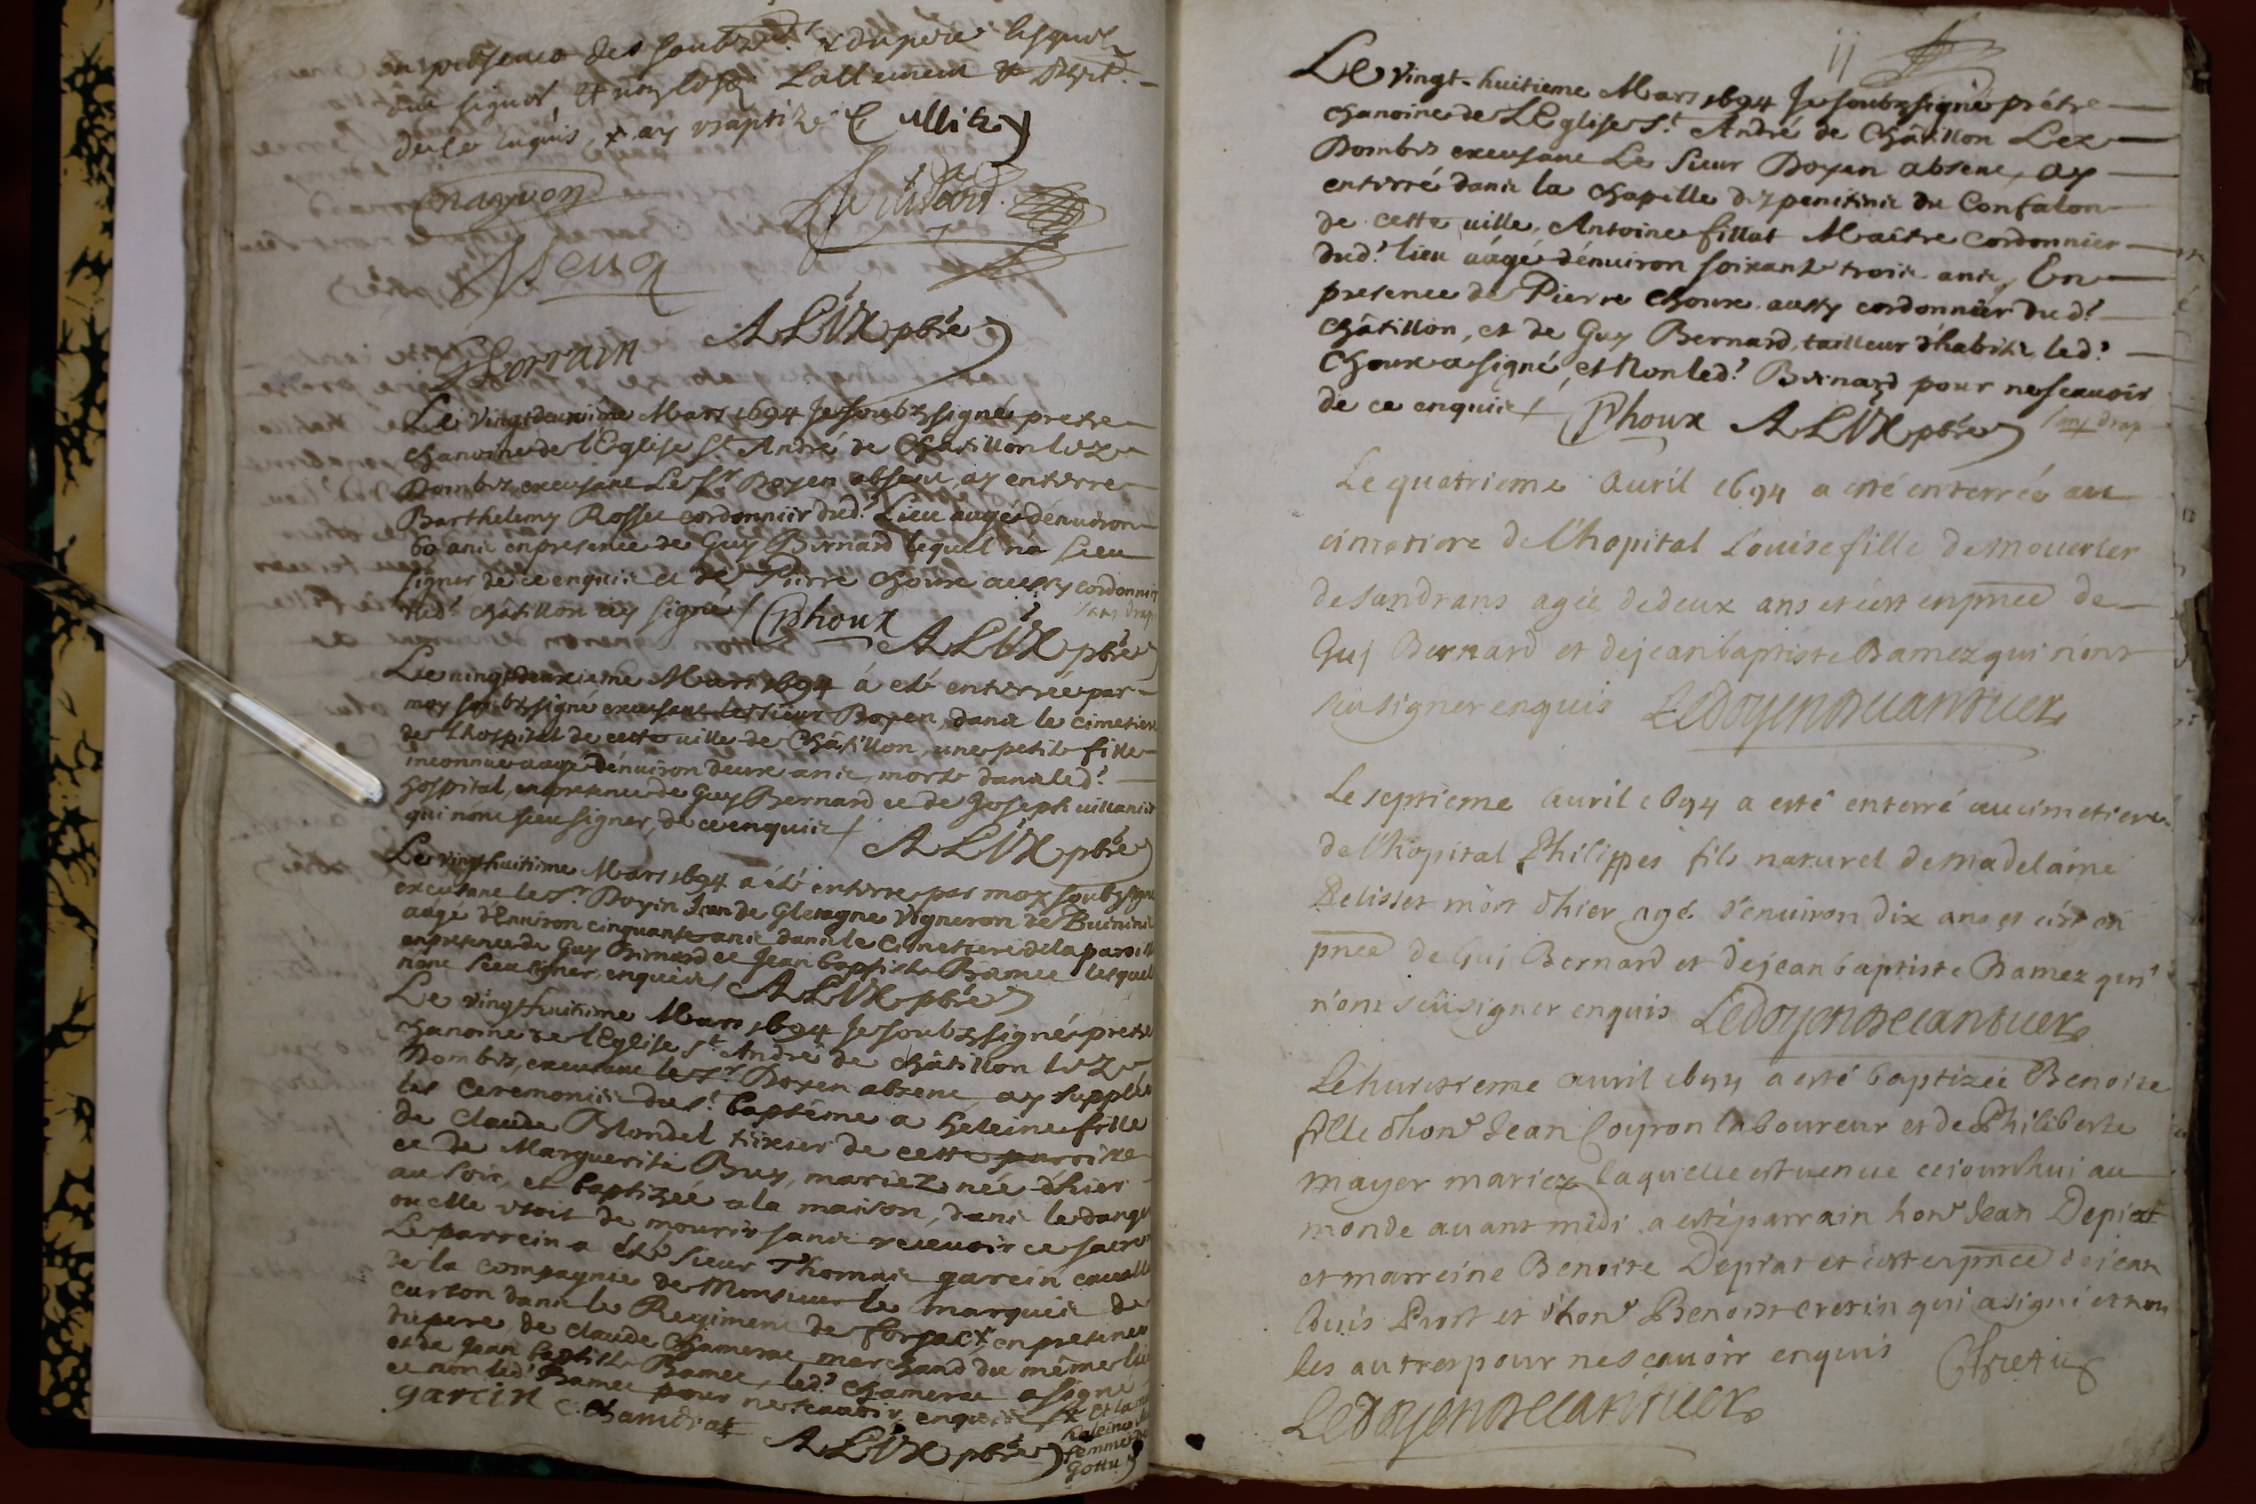 en presence des soubz.nez & du pere lesquels
ont signés, et non Lallement
de ce enquis, & ay baptizé
ALIX pbre
Le vingtdeuxiéme Mars 1694 Je soubzsigné pretre
chanoine de l'Eglise St. André de Châtillon lez
Dombes, excusant Le Sr. Doyen absent, ay enterré
Barthelemy Rosset cordonnier dud.t Lieu aagé d'enuiron
60 ans en presence de Guy Bernard lequel n'a sceu
signer de ce enquis et de Pierre Choux aussy cordonnier
dud.t châtillon qui signé / Phoux
ALIX pbre
Le vingtdeuxiéme Mars 1694 á eté enterrée par
moy soubzsigné excusant le sieur Doyen, dans le cimetiere
de l'hospital de cette ville de Châtillon, une petite fille
inconnue aagé d'enuiron deux ans, morte dans led.t
hospital, en presence de Guy Bernard et de Joseph
qui n'ont sceu signer, de ce enquis /
ALIX pbre
Le vingthuitiéme Mars 1694 a été enterré par moy soubzsigné
excusant le Sr. Doyen Jean de Gletagne vigneron de
aágé d'Enuiron cinquante ans dans le Cimetiere de la paroisse
en presence de Guy Bernard et Jean baptiste Bamet lesquels
n'ont sceu signer enquis / ALIX pbre
Le vingthuitiéme Mars 1694 Je soubzsigné pretre
chanoine de l'Eglise St. André de châtillon lez
Dombes, excusant le Sr. Doyen absent, ay supplée
les Ceremonies du St. baptême a heleine fille
de Claude Blondel tixier de cette paroisse
et de Marguerite Buy, mariez née d'hier
au soir, et baptizée a la maison, dans le danger
ou elle etoit de mourir sans recevoir ce sacre
Le parrein a été sieur Thomas garcin
de la compagnie de Monsieur le marquis de
curton dans le Regiment de forsact x en presence
du pere, de claude Chamerat marchand du même lieu
et de Jean baptiste Bamet, led.t Chamerat a signé
et non led.t Bamet pour ne scauoir, enquis / x et la
heleine
femme
gottu
garcin C. Chamerat
ALIX pbre
ij
Le vingt-huitiéme Mars 1694 Je soubzsigné prêtre
chanoine de L'Eglise St. André de Châtillon Lez
Dombes excusant Le sieur Doyen absent, ay
enterré dans la chapelle des penitens du Confalon
de cette ville, Antoine fillat Maître cordonnier
dud.t lieu aágé d'énuiron soixante trois ans, En
presence de Pierre Choux aussy cordonnier dud.t
Châtillon, et de Guy Bernard, tailleur d'habits, led.t
Choux a signé, et Non led.t Bernard pour ne scauoir
de ce enquis / Phoux ALIX pbre
Le quatrieme auril 1694 a esté enterrée au
cimetiere de l'hopital Louise fille de mouerler
de sandrans agée de deux ans et c'est en pnce de
Guj Bernard et de jean baptiste Bamez qui n'ont
sceu signer enquis Ledoyendecantuer
Le septieme auril 1694 a esté enterré au cimetiere
de l'hopital Philippes fils naturel de madelaine
Pelisset mort d'hier agé d'enuiron dix ans et c'est en
pnce de Guj Bernard et de jean baptiste Bamez qui
n'ont sceu signer enquis Ledoyendecantuer
Le huictieme auril 1694 a esté baptizée Benoite
fille d'hon. Jean Coyron laboureur et de Philiberte
mayer mariez laquelle est venue ce jourdhui au
monde auant midi a esté parrain hon. Jean Depirat
et marreine Benoite Depirat et c'est en pnce de jean
louis Prost et d'hon. Benoist cretin qui a signé et non
les autres pour ne scauoir enquis Cretin
Ledoyendecantuer